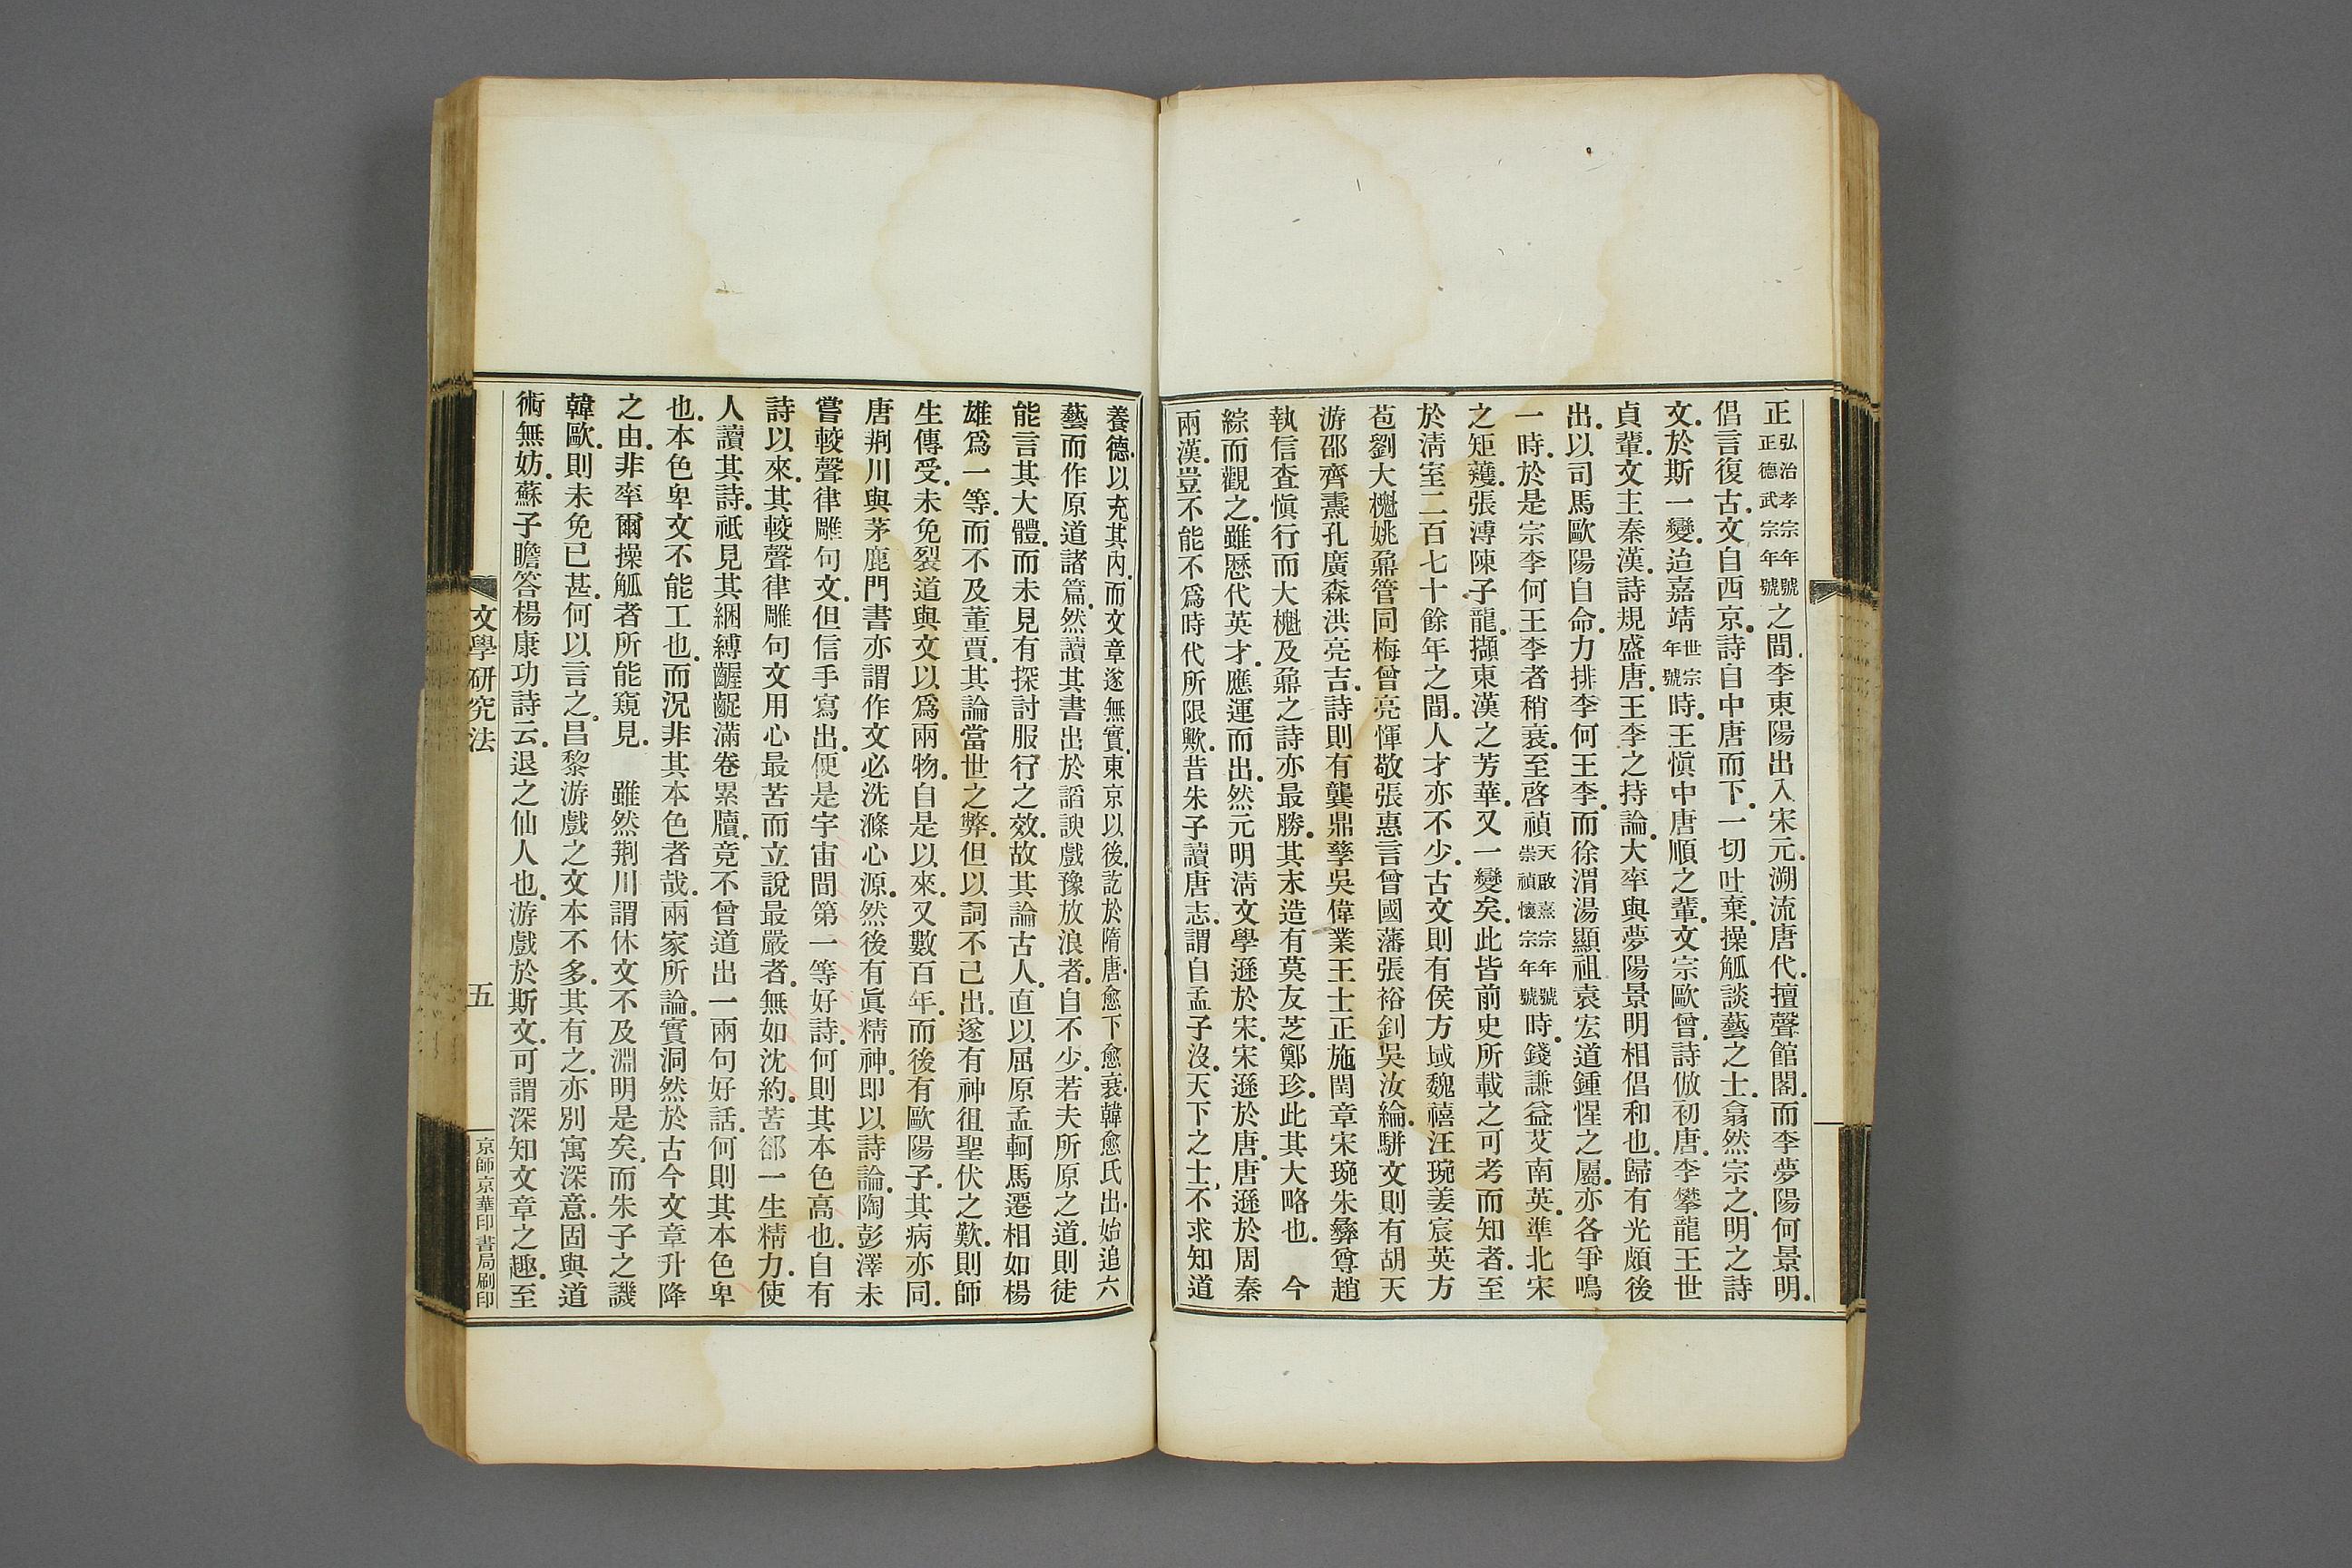 正弘治孝宗年號正德武宗年號之間.李東陽出入宋元.溯流唐代.擅聲館閣.而李夢陽何景明.
倡言復古.文自西京.詩自中唐而下.一切吐棄.操觚談藝之士.翕然宗之.明之詩
文.於斯一變.迨嘉靖世宗年號時.王愼中唐順之輩.文宗歐曾.詩倣初唐.李攀龍王世
貞輩.文主秦漢.詩規盛唐.王李之持論.大率與夢陽景明相倡和也.歸有光頗後
出.以司馬歐陽自命.力排李何王李.而徐渭湯顯祖袁宏道鍾惺之屬.亦各爭鳴
一時.於是宗李何王李者稍衰.至啓禎天啟熹宗年號崇禎懷宗年號時.錢謙益艾南英.準北宋
之矩矱.張溥陳子龍.擷東漢之芳華.又一變矣.此皆前史所載之可考而知者.至
於淸室二百七十餘年之間.人才亦不少.古文則有侯方域魏禧汪琬姜宸英方
苞劉大櫆姚鼐管同梅曾亮惲敬張惠言曾國藩張裕釗吳汝綸.駢文則有胡天
游邵齊燾孔廣森洪亮吉.詩則有龔鼎孳吳偉業王士正施閏章宋琬朱彝尊趙
執信查愼行而大櫆及鼐之詩亦最勝.其末造有莫友芝鄭珍.此其大略也.　今
綜而觀之.雖歷代英才.應運而出.然元明淸文學遜於宋.宋遜於唐.唐遜於周秦
兩漢.豈不能不爲時代所限歟.昔朱子讀唐志.謂自孟子沒.天下之士.不求知道
養德.以充其內.而文章遂無實.東京以後.訖於隋唐.愈下愈衰.韓愈氏出.始追六
藝而作原道諸篇.然讀其書出於諂諛戲豫放浪者.自不少.若夫所原之道.則徒
能言其大體.而未見有探討服行之效.故其論古人.直以屈原孟軻馬遷相如楊
雄爲一等.而不及董賈.其論當世之弊.但以詞不己出.遂有神徂聖伏之歎.則師
生傳受.未免裂道與文以爲兩物.自是以來.又數百年.而後有歐陽子.其病亦同.
唐荆川與茅鹿門書亦謂作文必洗滌心源.然後有眞精神.即以詩論.陶彭澤未
嘗較聲律雕句文.但信手寫出.便是宇宙間第一等好詩.何則其本色高也.自有
詩以來.其較聲律雕句文用心最苦而立說最嚴者.無如沈約.苦卻一生精力.使
人讀其詩.祇見其綑縛齷齪滿卷累牘.竟不曾道出一兩句好話.何則其本色卑
也.本色卑文不能工也.而況非其本色者哉.兩家所論.實洞然於古今文章升降
之由.非率爾操觚者所能窺見.　雖然荆川謂休文不及淵明是矣.而朱子之譏
韓歐.則未免已甚.何以言之.昌黎游戲之文本不多.其有之.亦別寓深意.固與道
術無妨.蘇子瞻答楊康功詩云.退之仙人也.游戲於斯文.可謂深知文章之趣.至
文學研究法
五
京師京華印書局刷印